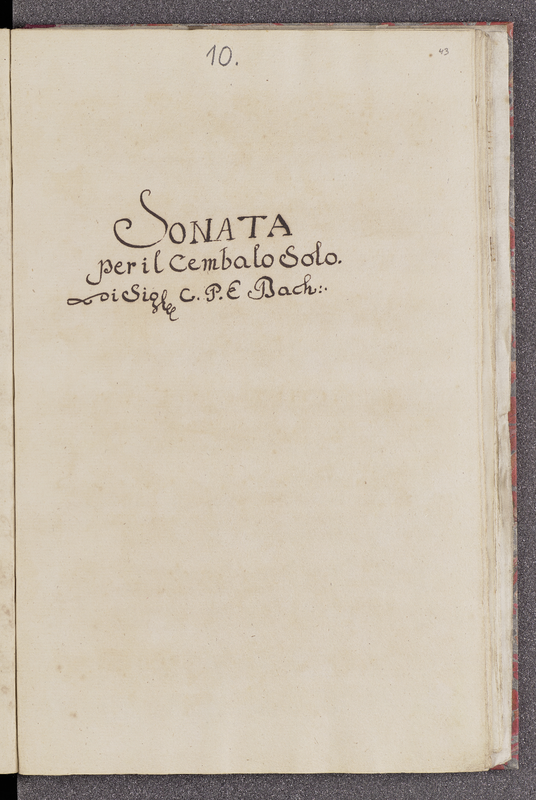 10.
43
SONATA
per il Cembalo Solo.
di Sigre C. P. E Bach:.